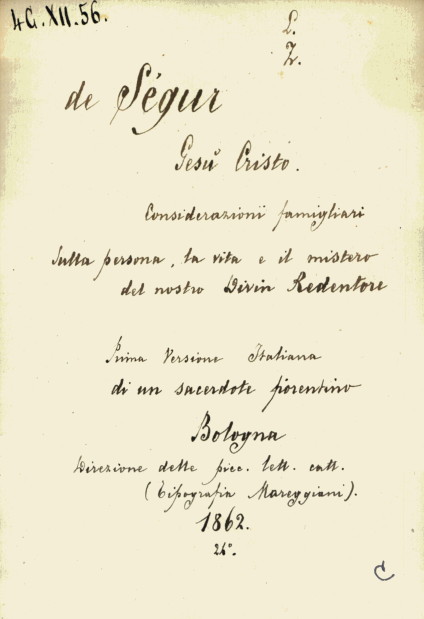 4G.XII.56.
L.
Z.
de Ségur
Gesù Cristo.
Considerazioni famigliari
sulla persona, la vita e il mistero
del nostro Divin Redentore
Prima Versione Italiana
di un sacerdote fiorentino
Bologna
Direzione delle picc. lett. catt.
(Tipografia Mareggiani).
1862.
24°.
C